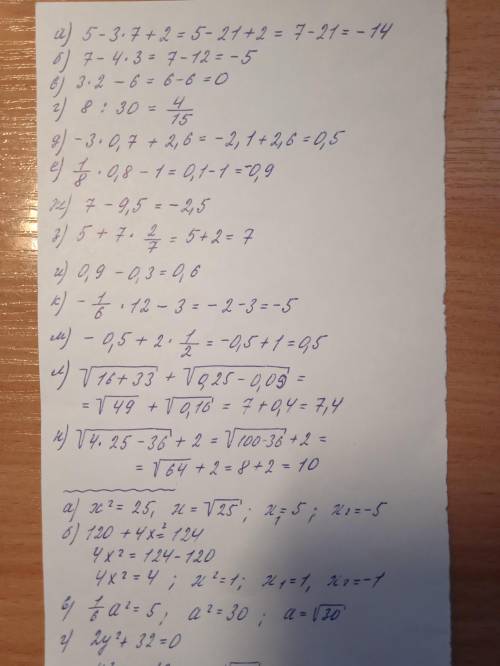 а) 5 - 3 · 7 + 2 = 5 - 21 + 2 = 7 - 21 = -14
б) 7 - 4 · 3 = 7 - 12 = -5
в) 3 · 2 - 6 = 6 - 6 = 0
г) 8 : 30 = 4/15
д) -3 · 0,7 + 2,6 = -2,1 + 2,6 = 0,5
е) 1/8 · 0,8 - 1 = 0,1 - 1 = -0,9
ж) 7 - 9,5 = -2,5
з) 5 + 7 · 2/7 = 5 + 2 = 7
и) 0,9 - 0,3 = 0,6
к) - 1/6 · 12 - 3 = -2 - 3 = -5
м) - 0,5 + 2 · 1/2 = -0,5 + 1 = 0,5
л) √16 + 33 + √0,25 - 0,09 =
= √49 + √0,16 = 7 + 0,4 = 7,4
н) √4 · 25 - 36 + 2 = √100 - 36 + 2 =
= √64 + 2 = 8 + 2 = 10
а) x² = 25, x = √25 ; x₁ = 5 ; x₂ = -5
б) 120 + 4x² = 124
4x² = 124 - 120
4x² = 4 ; x² = 1 ; x₁ = 1, x₂ = -1
в) 1/6 a² = 5 ; a² = 30 ; a = √30
г) 2y² + 32 = 0